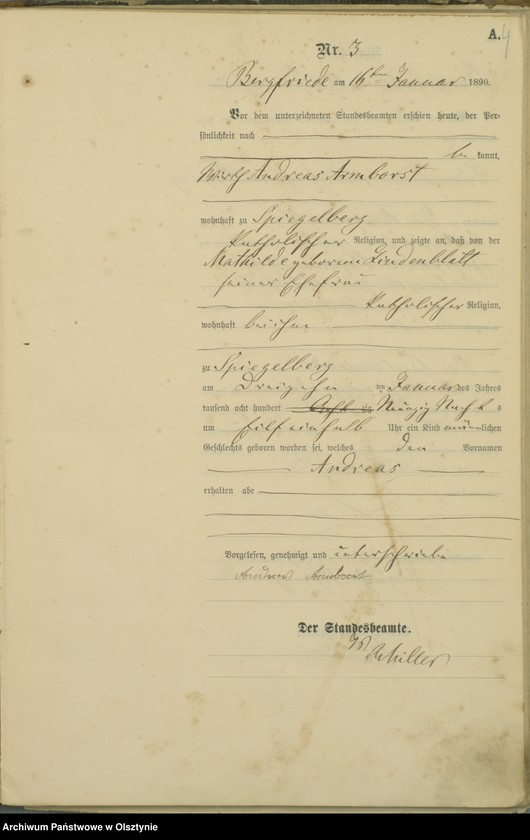 A. 4
Nr. 3
Bergfriede am 16ten Januar 1890.
Vor dem unterzeichneten Standesbeamten erschien heute, der Per-
sönlichkeit nach
be kannt,
Wirth Andreas Armborst
wohnhaft zu Spiegelberg
katholischer Religion, und zeigte an, daß von der
Mathilde geborenen Lindenblatt
seiner Ehefrau
katholischer Religion,
wohnhaft bei ihm
zu Spiegelberg
am Dreizehn ten Januar des Jahres
tausend acht hundert zig Neunzig Nachts
um Eilf einhalb Uhr ein Kind männlichen
Geschlechts geboren worden sei, welches den Vornamen
Andreas
erhalten abe
Vorgelesen, genehmigt und unterschrieben
Andreas Armborst
Der Standesbeamte.
Schiller
Archiwum Państwowe w Olsztynie